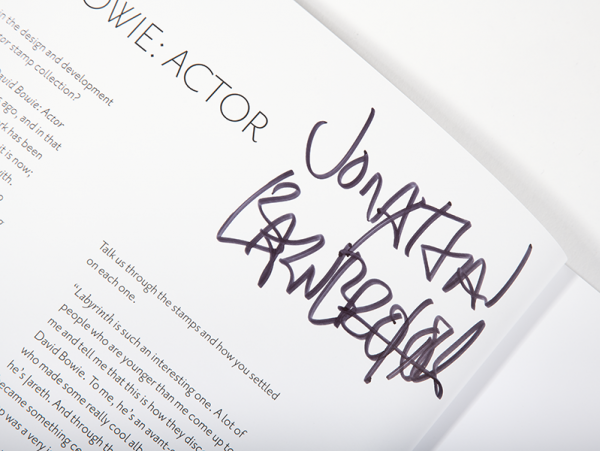 OWIE: ACTOR
in the design and development
or stamp collection?
David Bowie: Actor
s ago, and in that
rk has been
it is now;
with.
Jonathan
Barnbrook
Talk us through the stamps and how you settled
on each one.
"Labyrinth is such an interesting one. A lot of
people who are younger than me come up to
me and tell me that this is how they disc
David Bowie. To me, he's an avant-
who made some really cool alb
he's Jareth. And through th
ecame something ce
p was a very i